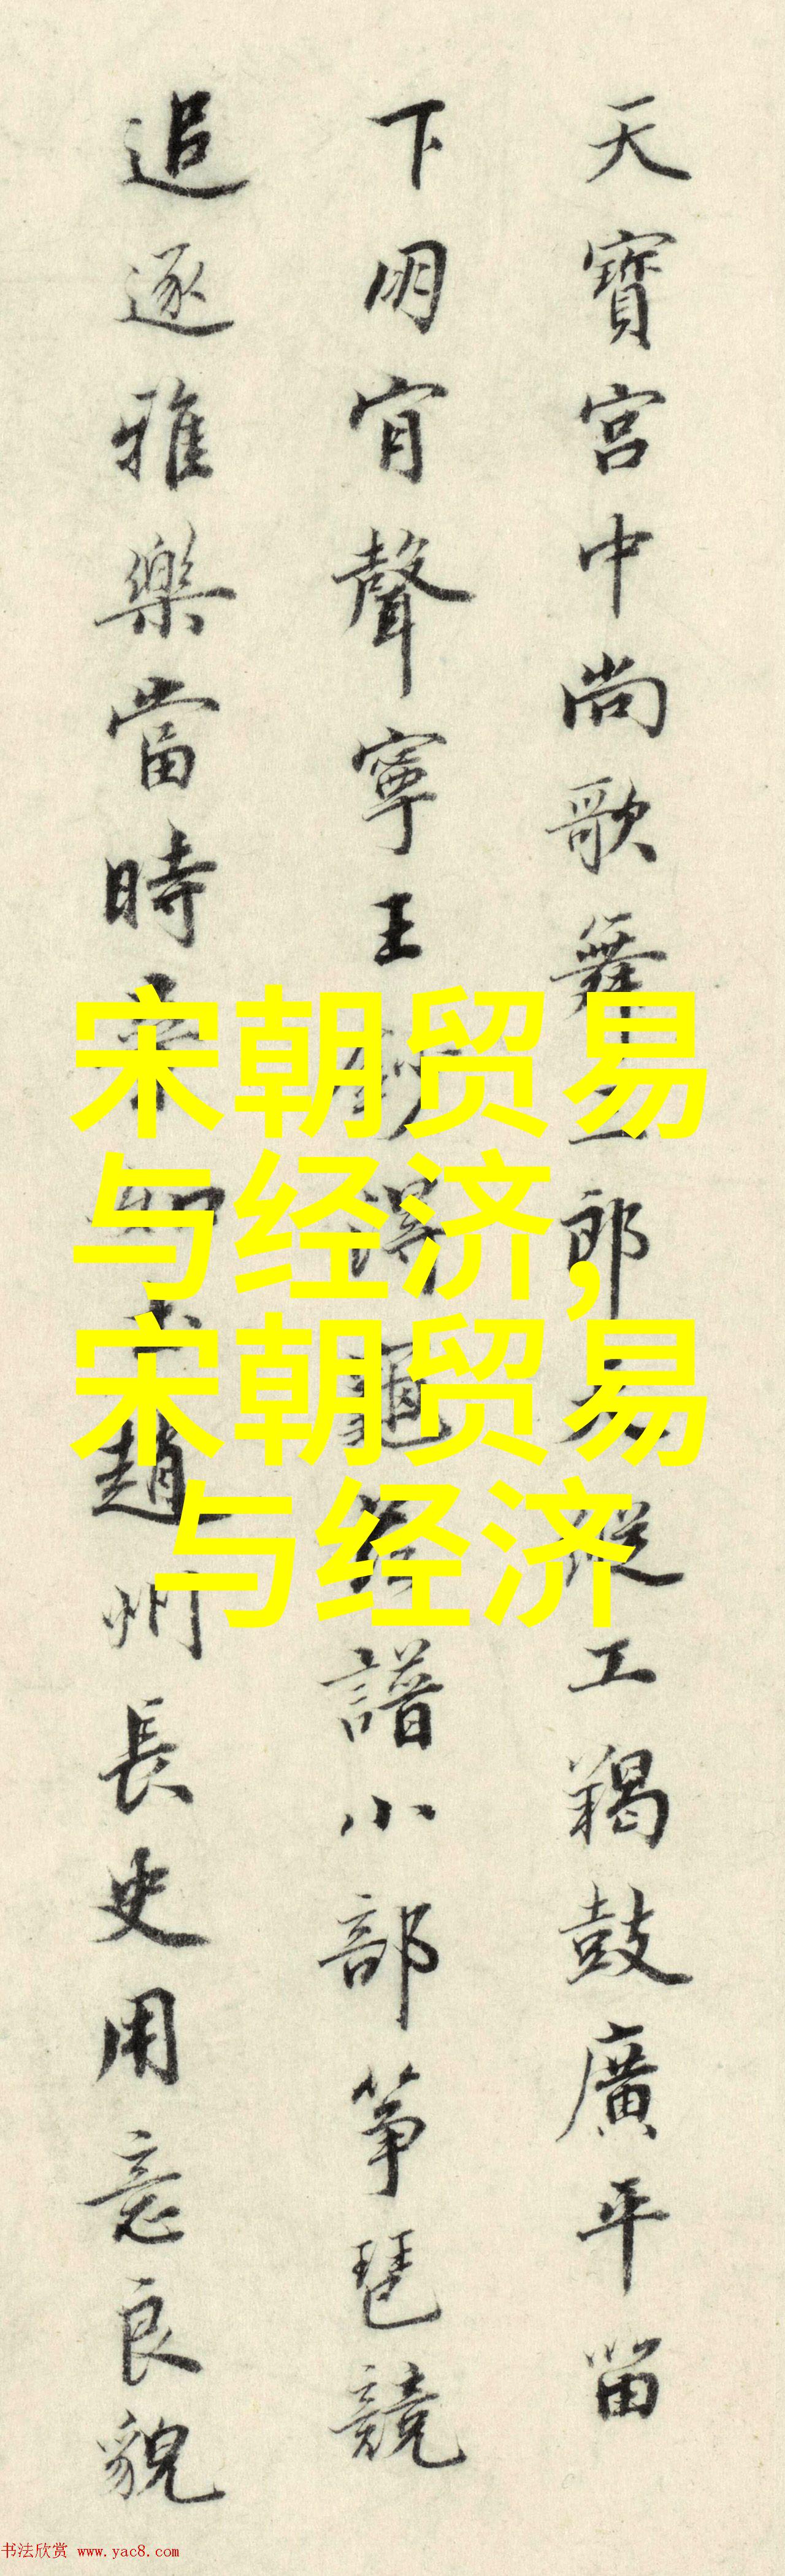 天寶宮中尚歌舞三郎
工羯鼓廣平留
下朙育聲寧王
譜小部箏琶競
追逐雅樂當時
趙州長史用意良貌
宋朝贸易
与经济,
宋朝贸易
与经济
书法欣赏 www.yac8.com